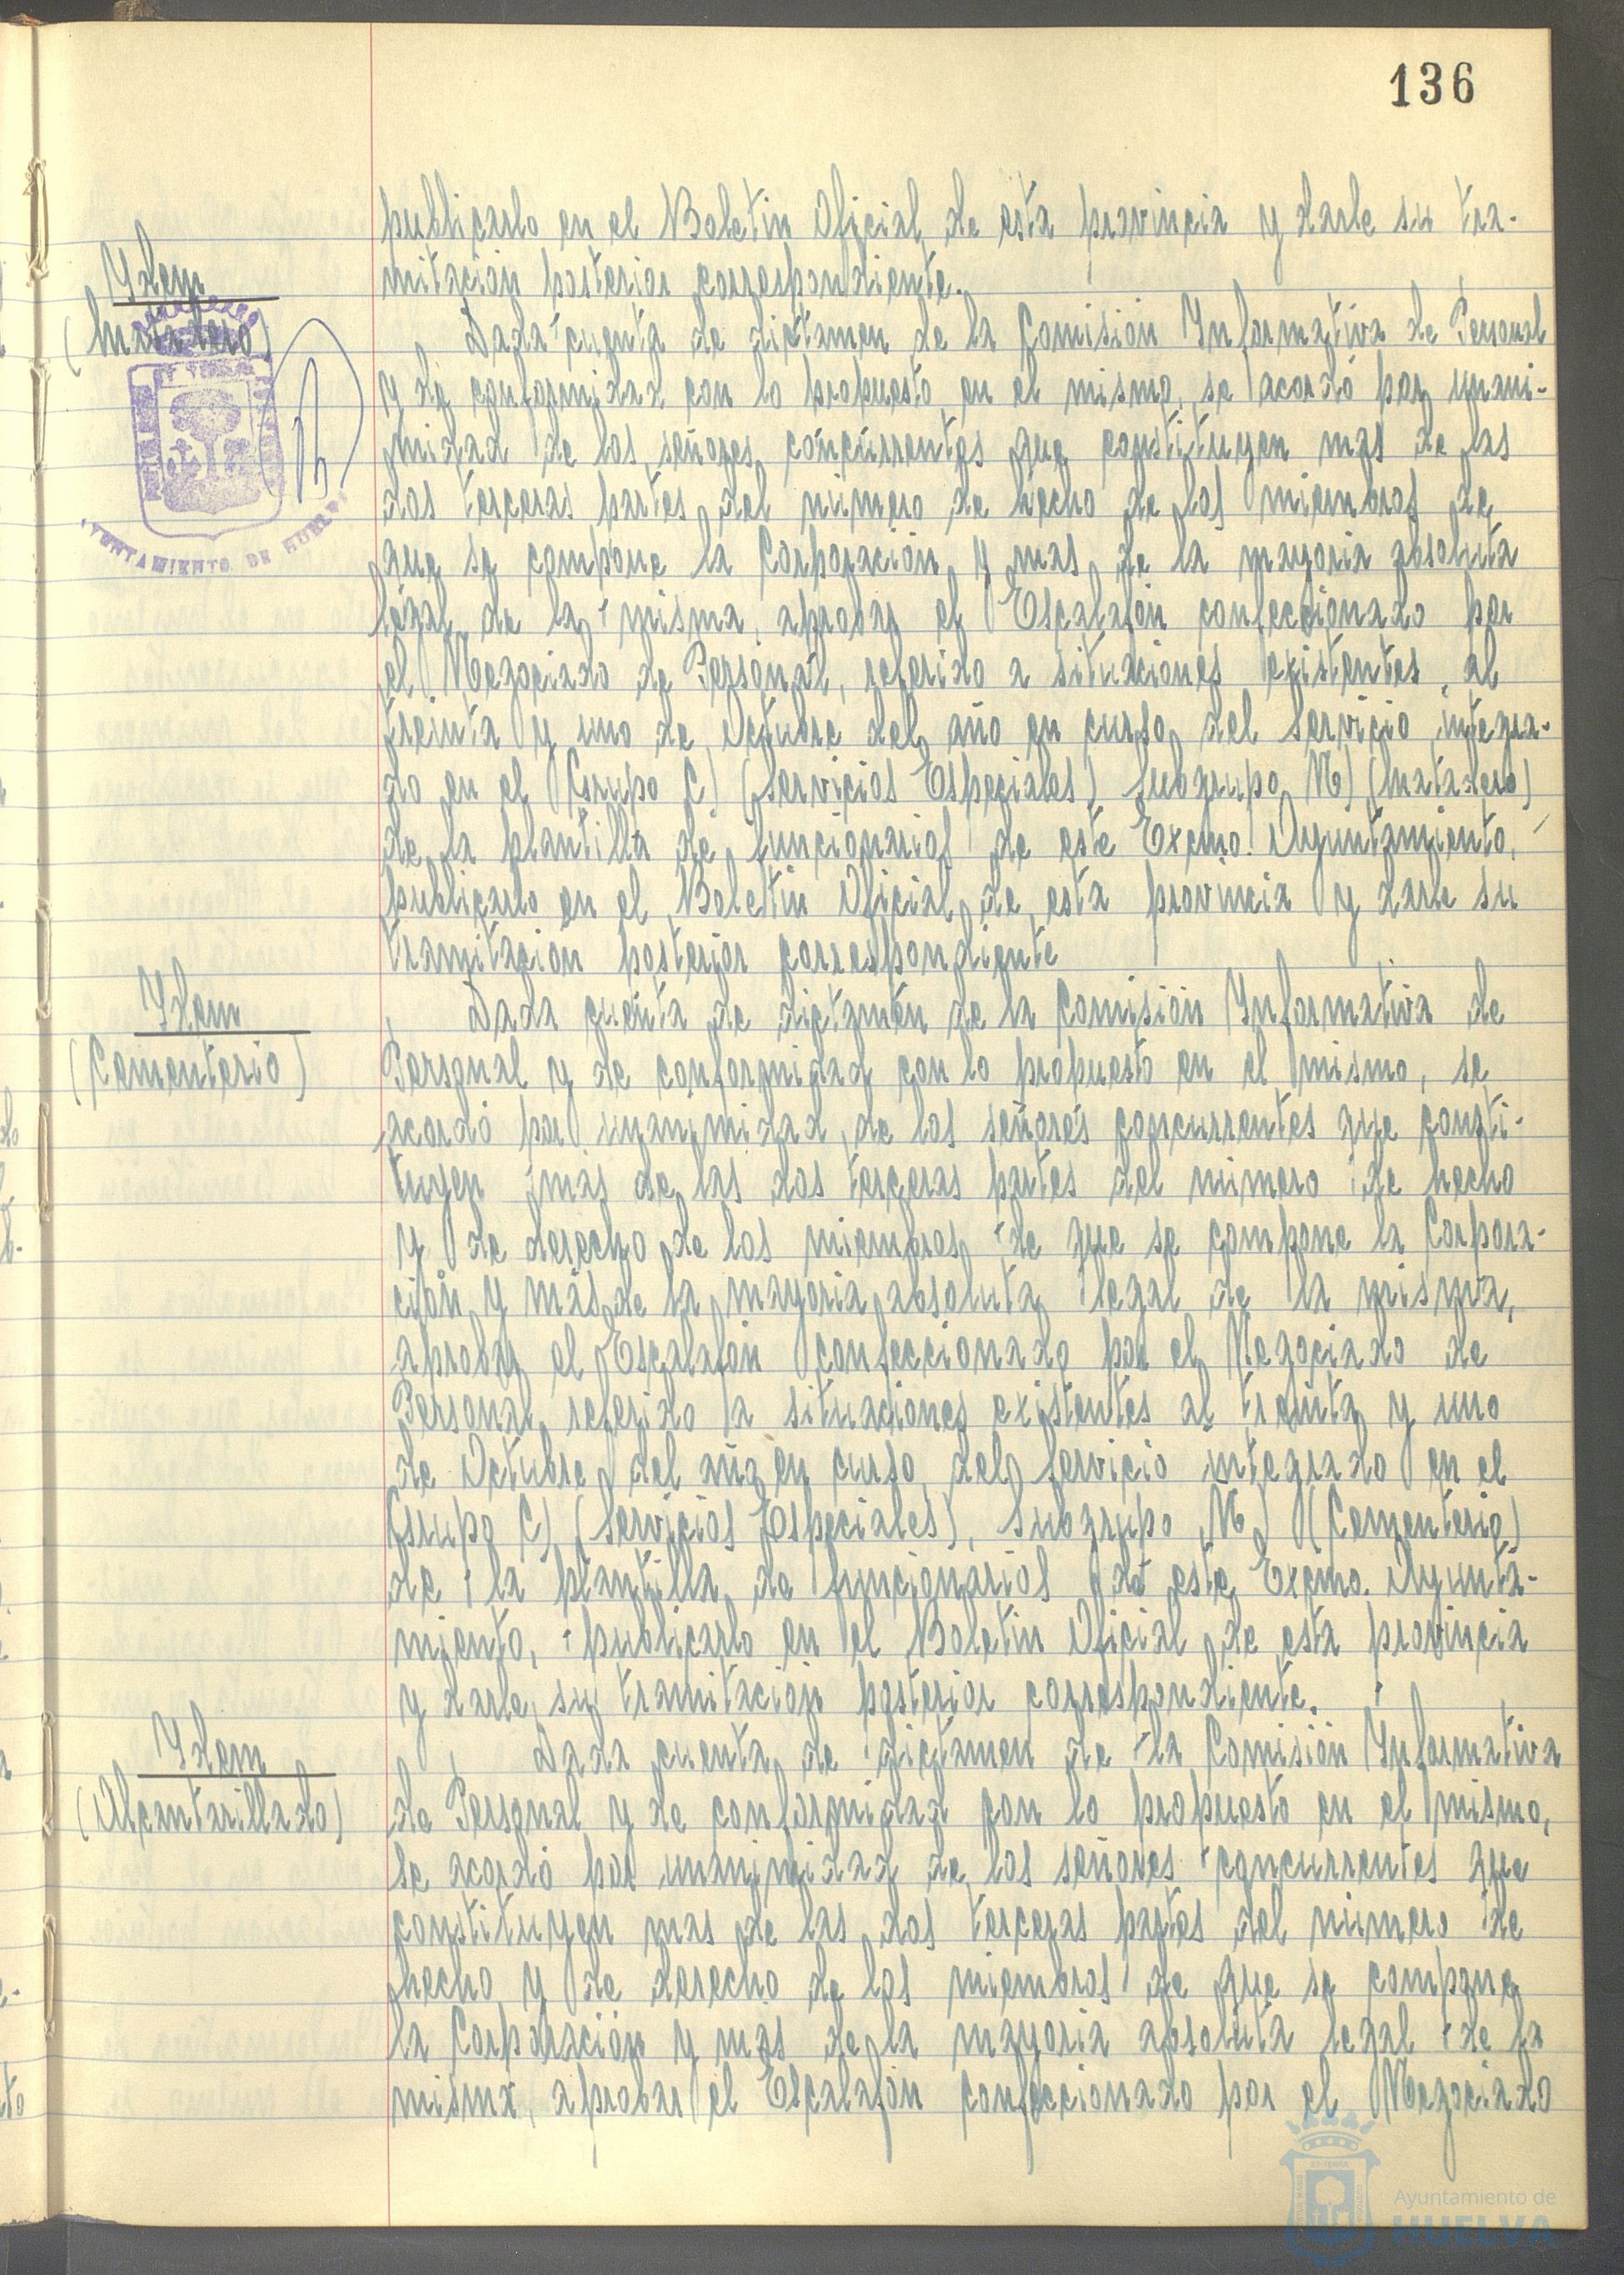 136
publicarlo en el Boletin Oficial de esta provincia y darle su tra-
mitación posterior correspondiente.
Ydem
(Matadero)
Dada cuenta de dictamen de la Comisión Informativa de Personal
y de conformidad con lo propuesto en el mismo, se acordó por unani-
midad de los señores concurrentes que constituyen mas de las
dos terceras partes del número de hecho de los miembros de
que se compone la Corporación y mas de la mayoria absoluta
legal de la misma, aprobar el Escalafón confeccionado por
el Negociado de Personal, referido a situaciones existentes al
treinta y uno de Octubre del año en curso del Servicio integra-
do en el Grupo C) (Servicios Especiales) Subgrupo M) (Matadero)
de la plantilla de funcionarios de este Excmo. Ayuntamiento,
publicarlo en el Boletin Oficial de esta provincia y darle su
tramitación posterior correspondiente
AYUNTAMIENTO DE HUELVA
Ydem
(Cementerio)
Dada cuenta de dictamen de la Comisión Informativa de
Personal y de conformidad con lo propuesto en el mismo, se
acordó por unanimidad de los señores concurrentes que consti-
tuyen más de las dos terceras partes del número de hecho
y de derecho de los miembros de que se compone la Corpora-
ción y más de la mayoria absoluta legal de la misma,
aprobar el Escalafón confeccionado por el Negociado de
Personal referido a situaciones existentes al treinta y uno
de Octubre del año en curso del Servicio integrado en el
Grupo C) (Servicios Especiales), Subgrupo N) (Cementerio)
de la plantilla de funcionarios de este Excmo. Ayunta-
miento, publicarlo en el Boletin Oficial de esta provincia
y darle su tramitación posterior correspondiente.
Ydem
(Alcantarillado)
Dada cuenta de dictamen de la Comisión Informativa
de Personal y de conformidad con lo propuesto en el mismo,
se acordó por unanimidad de los señores concurrentes que
constituyen mas de las dos terceras partes del número de
hecho y de derecho de los miembros de que se compone
la Corporación y mas de la mayoria absoluta legal de la
misma, aprobar el Escalafón confeccionado por el Negociado
Ayuntamiento de
HUELVA